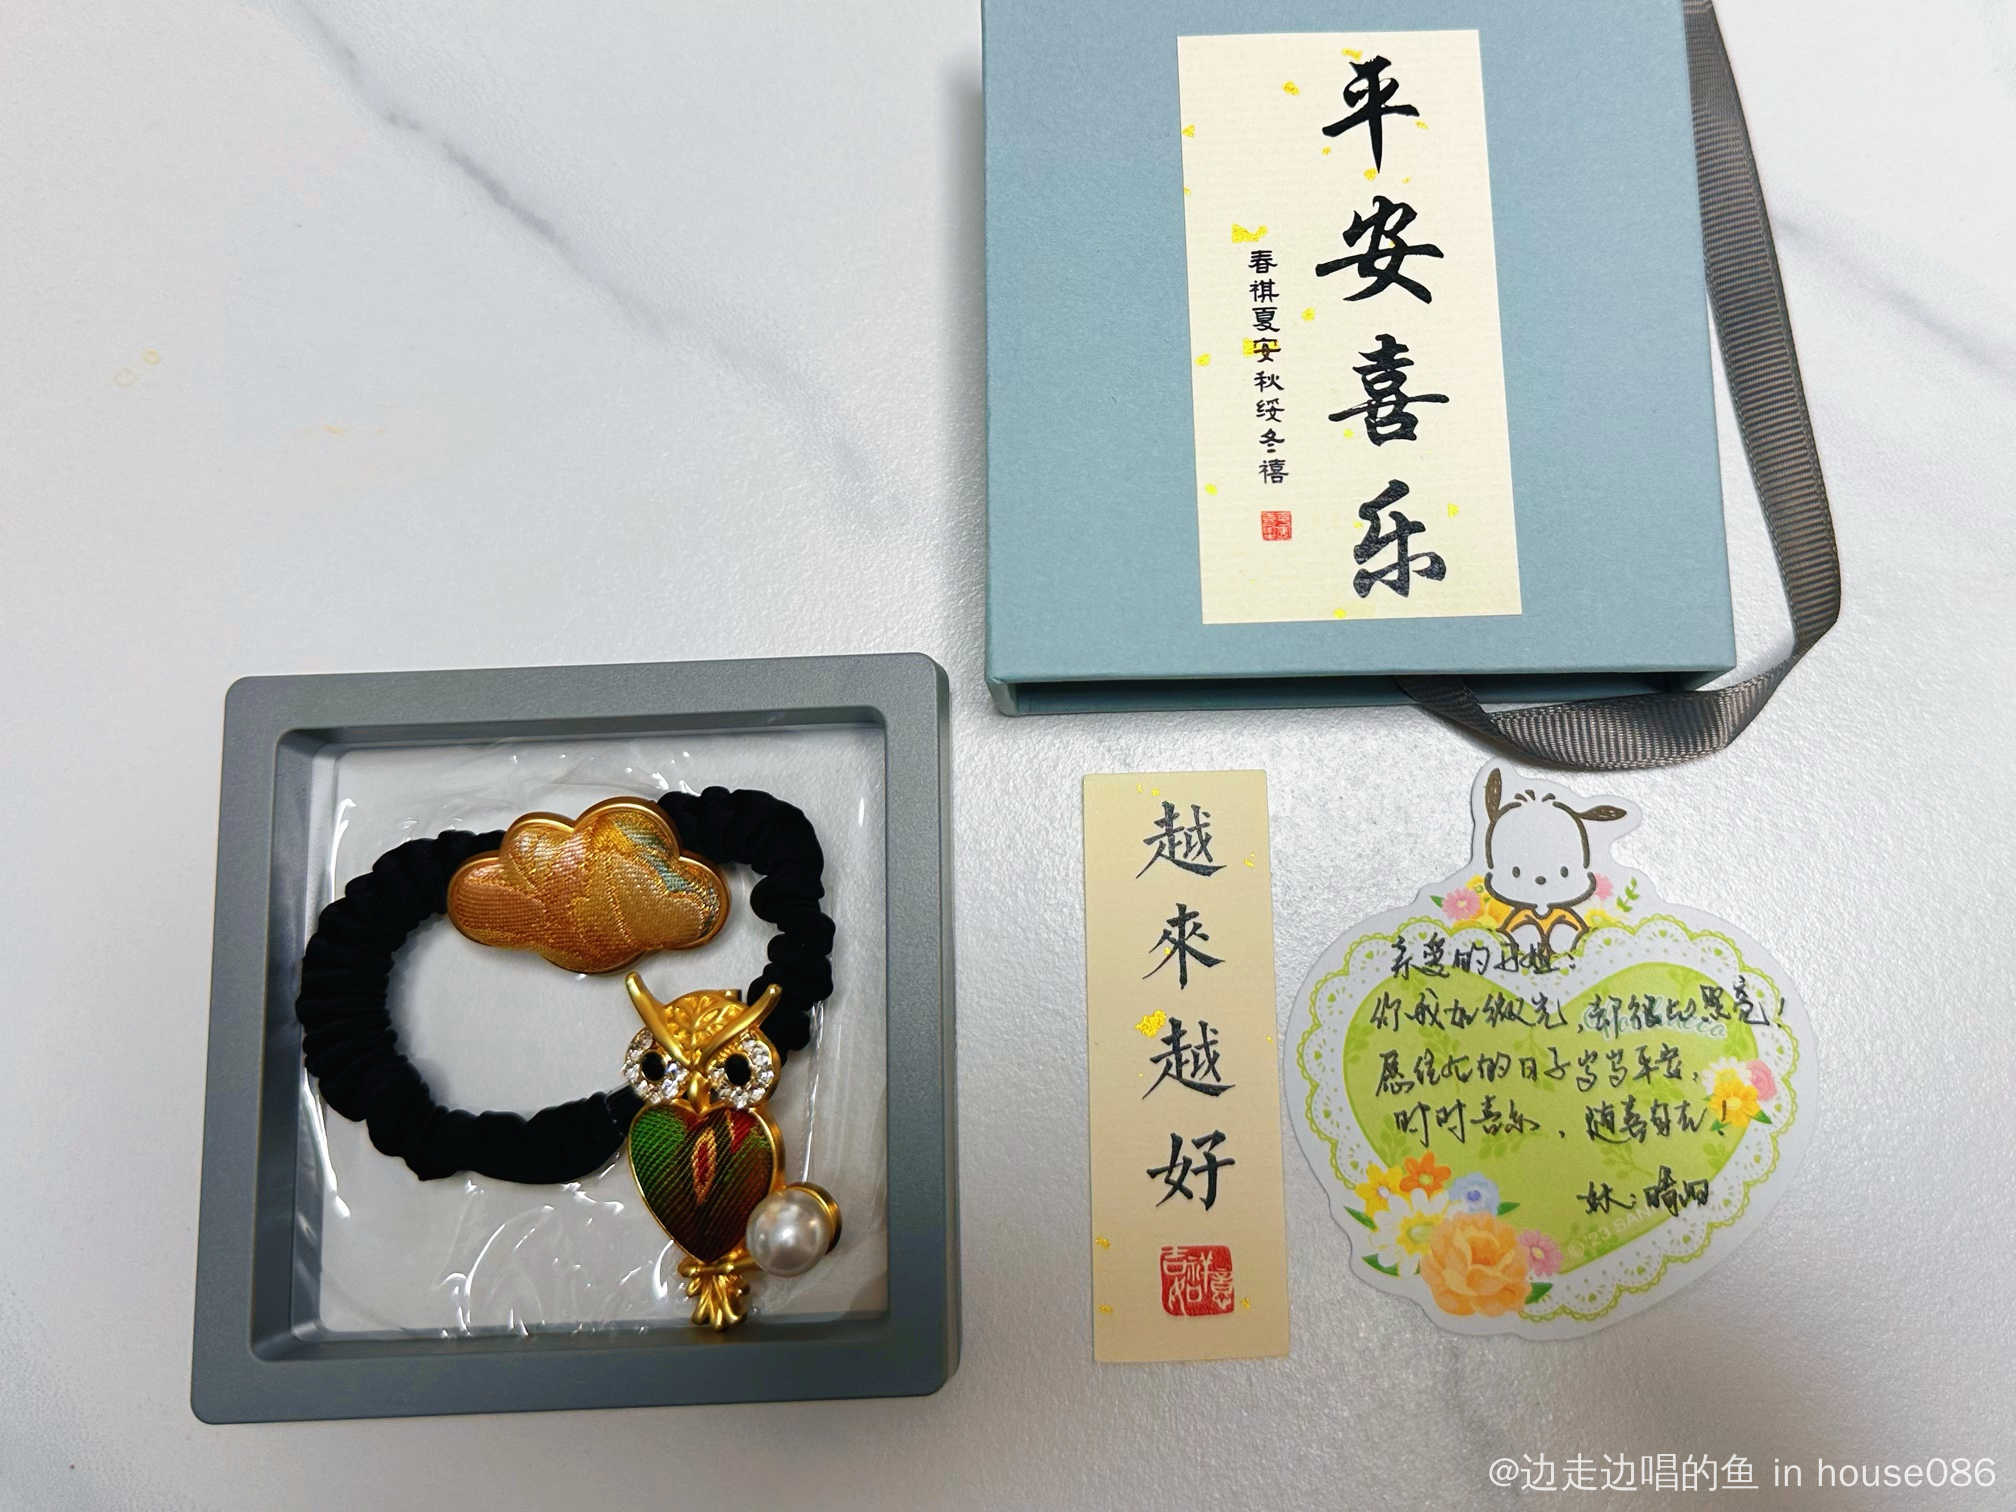 平安喜乐
春祺夏安秋绥冬禧
越來越好
吉祥如意
亲爱的
你我如微光,却彼此照亮!
愿往后的日子岁岁平安,
时时喜乐,随喜自在!
妹:晴
@边走边唱的鱼 in house086